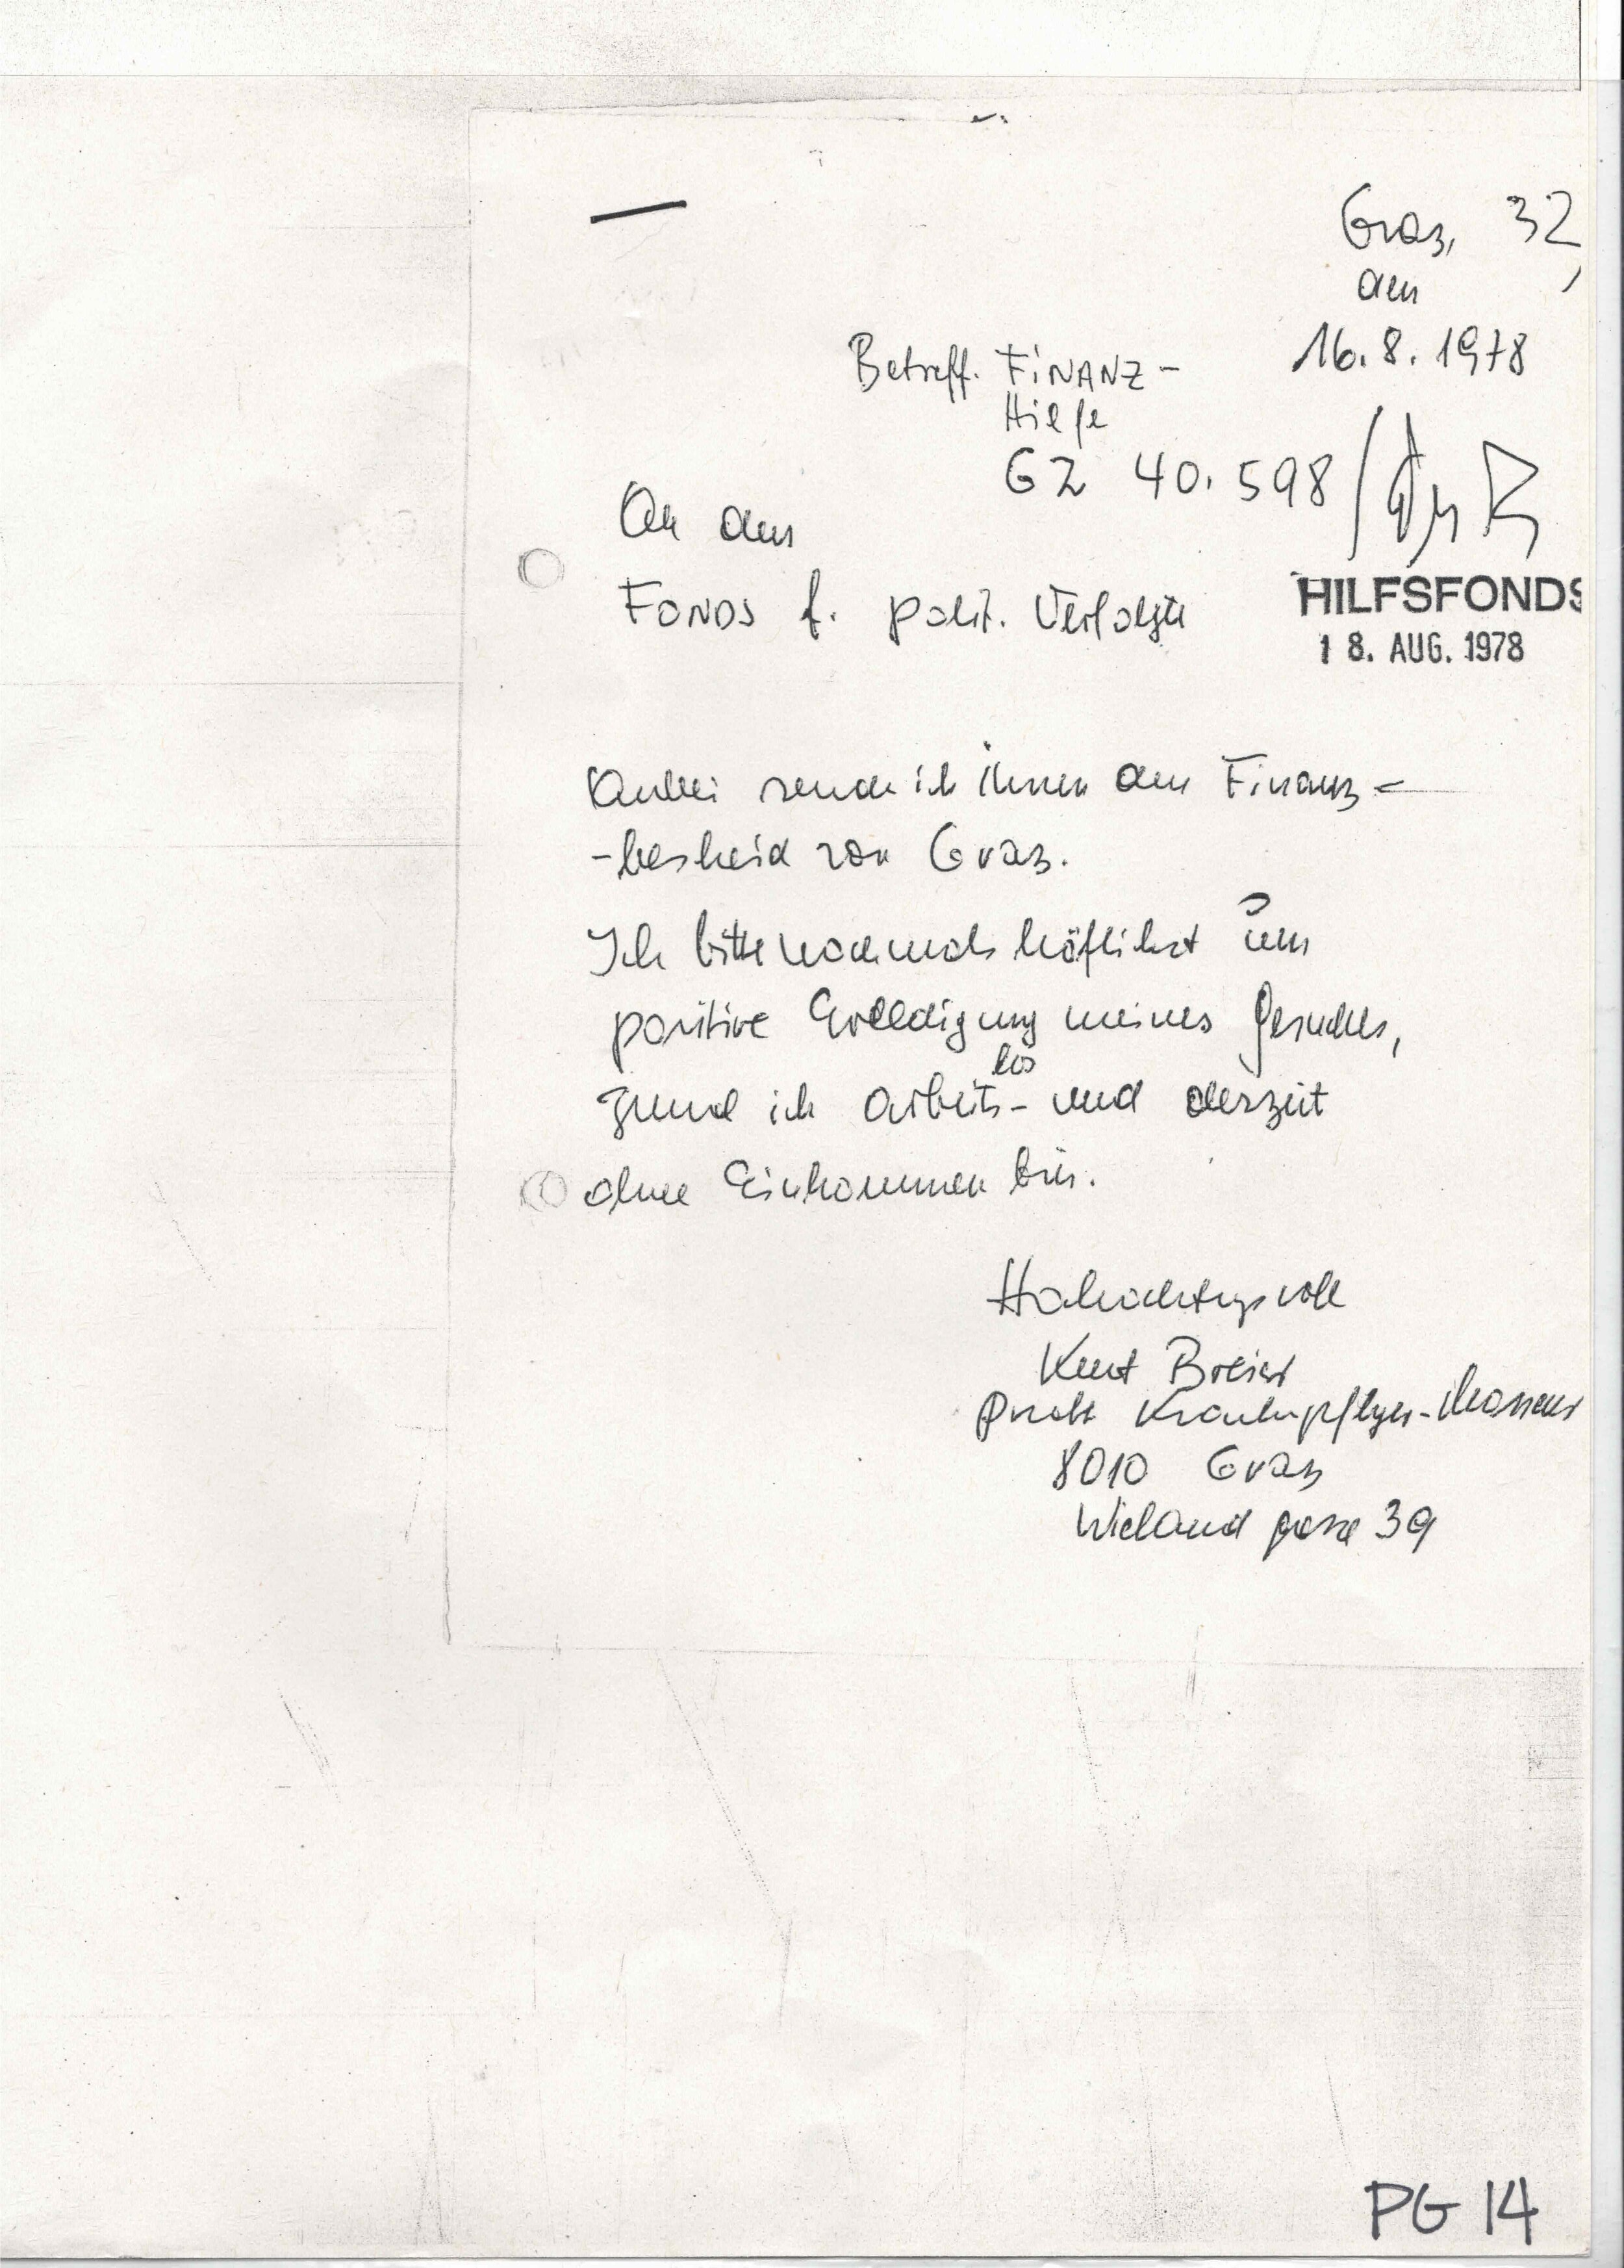 Graz, 32,
den
16.8.1978
Betreff. FiNANZ-
Hilfe
GZ 40.598/
An den
FONDS f. polit. Verfolgte
HILFSFONDS
18. AUG. 1978
Anbei sende ich ihnen den Finanz-
-bescheid von Graz.
Ich bitte nochmals höflichst um
positive Erledigung meines Gesuches,
ich arbeits- und derzeit
los
ohne Einkommen bin.
Hochachtungsvoll
Kurt Breier
Krankenpfleger-Masseur
8010 Graz
Wielandgasse 39
PG 14